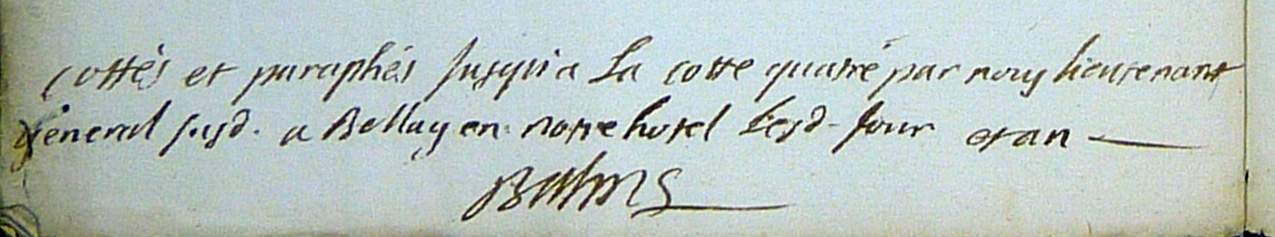 cottés et paraphés jusqu'a La cotte quatre par nous lieutenant
general susd. a Bellay en notre hotel lesd. jour et an
Balme